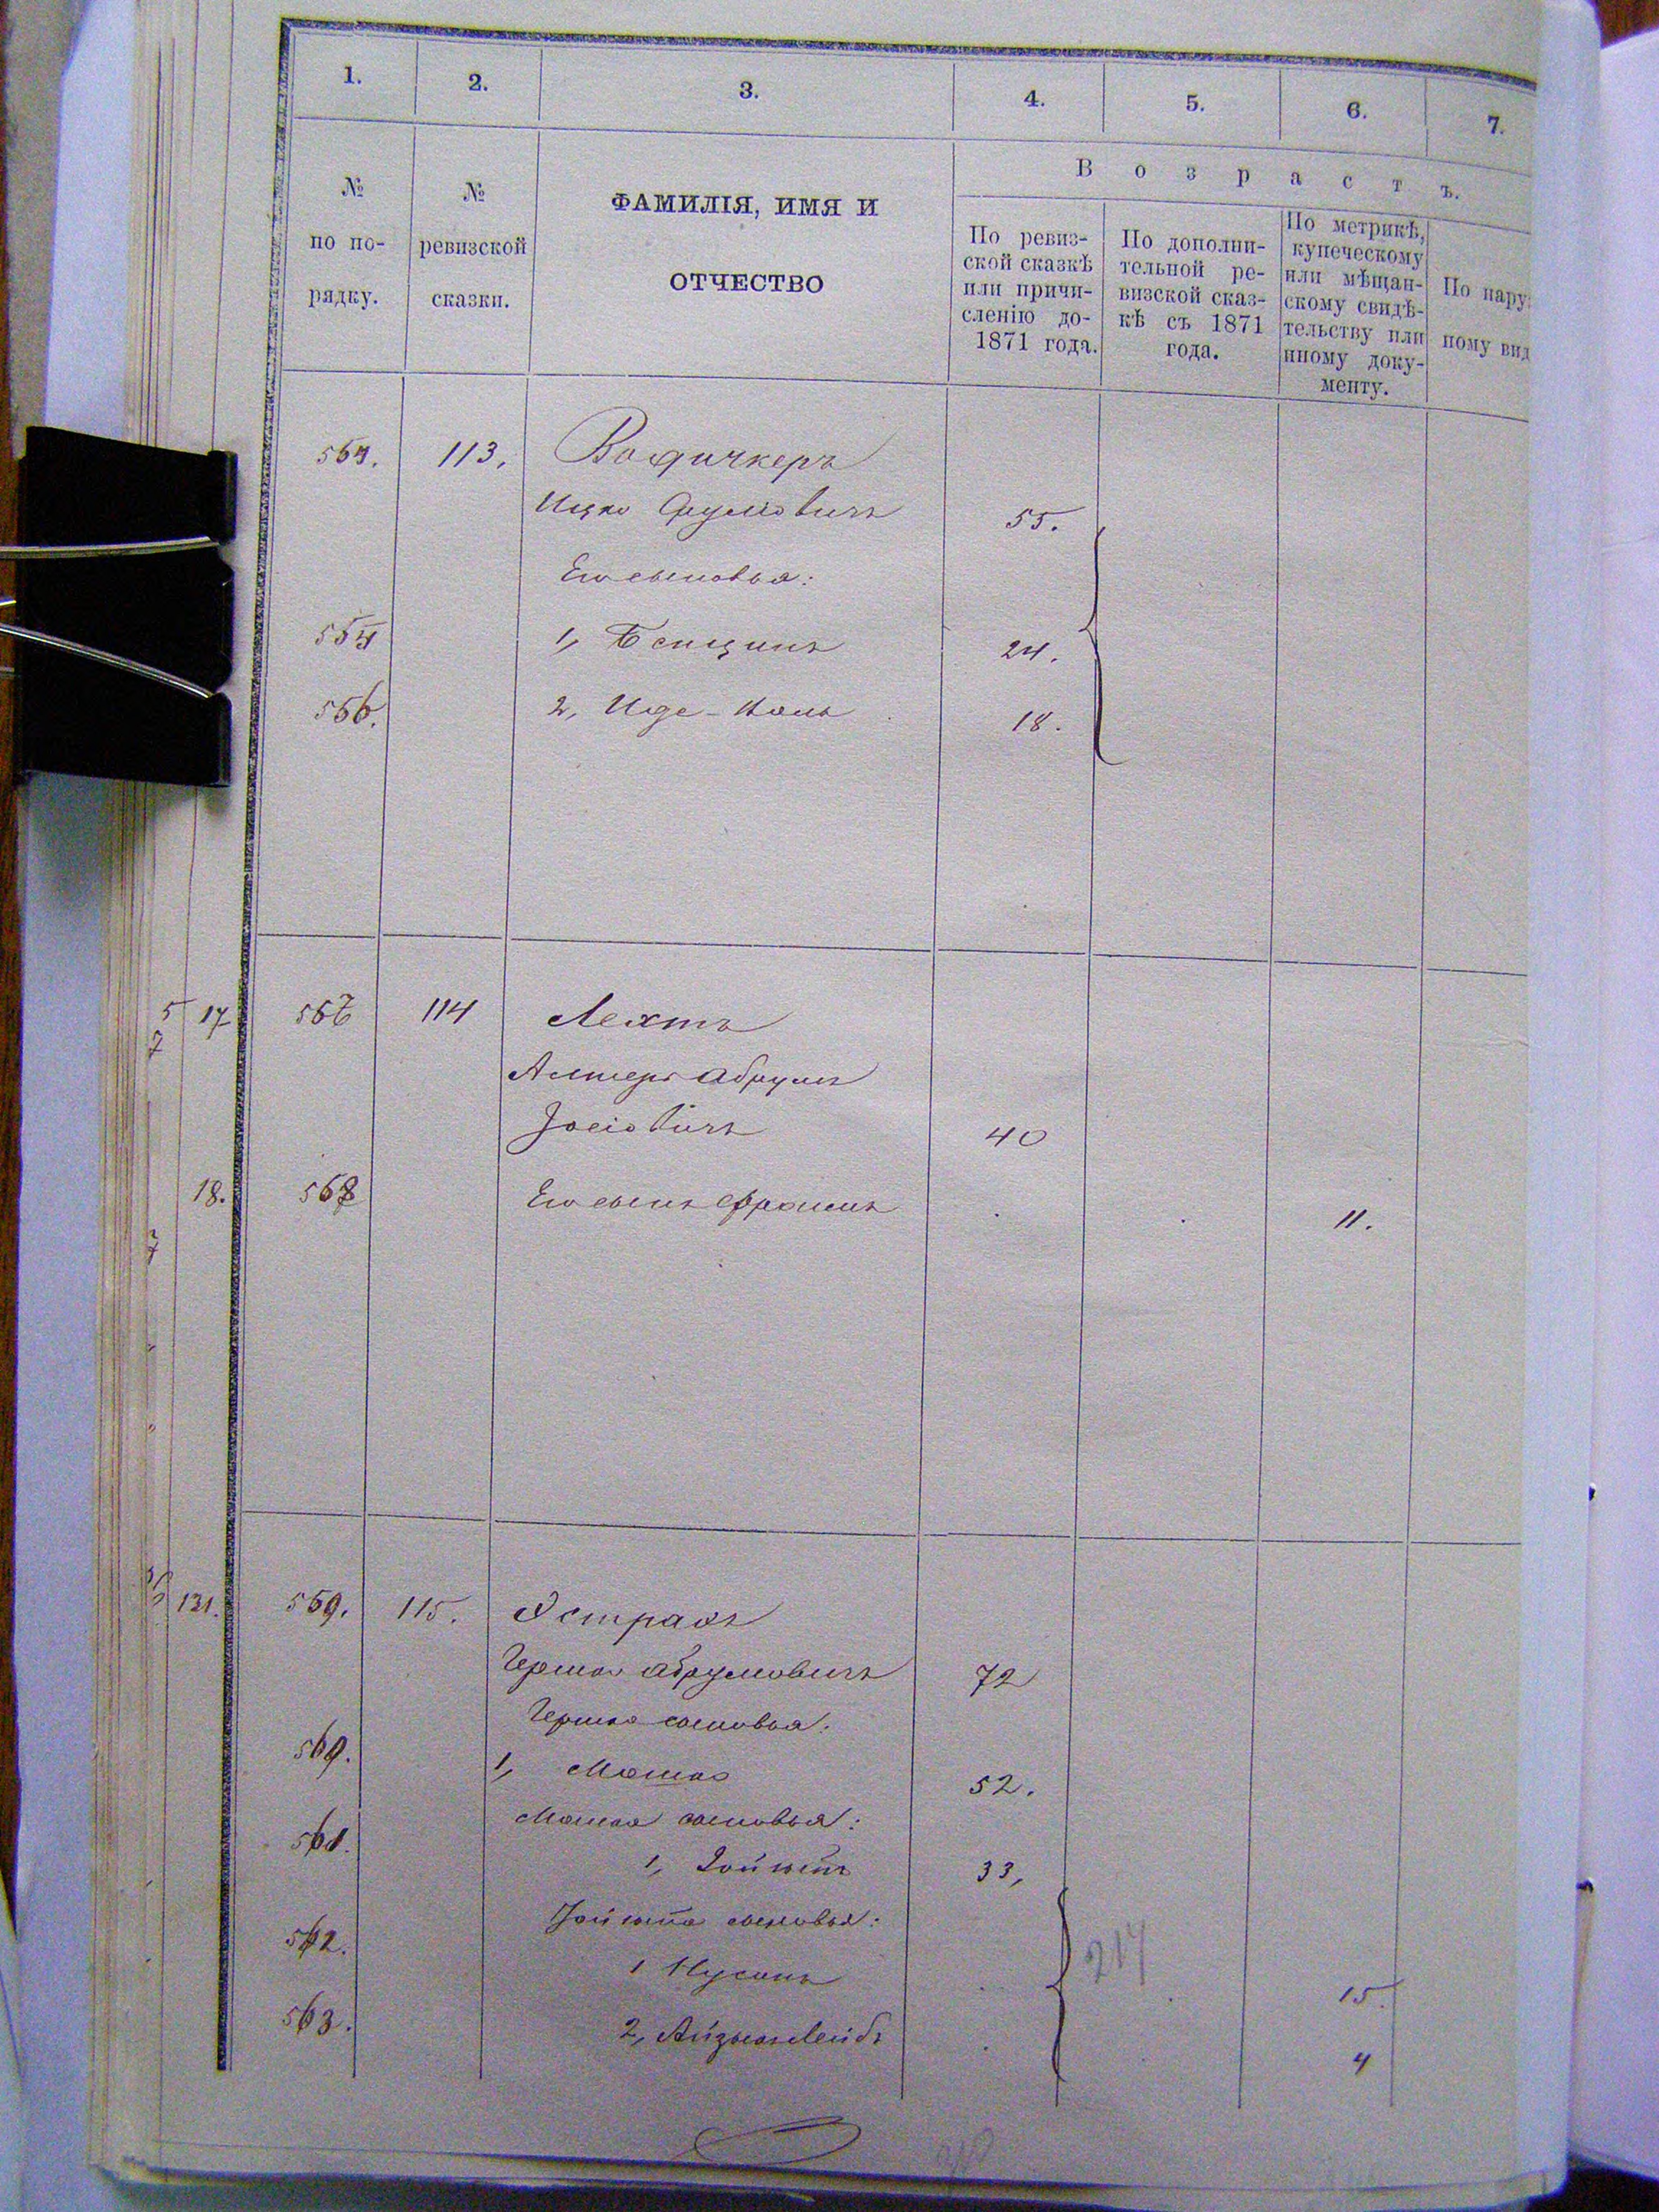 1. 2. 3. 4. 5. 6. 7.
№ по по-
рядку.
№
ревизской
сказки.
ФАМИЛІЯ, ИМЯ И
ОТЧЕСТВО
Возрастъ.
По ревиз-
ской сказкѣ
или причи-
сленію до-
1871 года.
По дополни-
тельной ре-
визской сказ-
кѣ съ 1871
года.
По метрикѣ,
купеческому
или мѣщан-
скому свидѣ-
тельству или
иному доку-
менту.
По нару
ному вид
113.
Ицко Сруліовичъ 55.
Его сыновья:
1, Бенціинъ 24.
566. 2, Иде-Йоль 18.
5 17 114 Лехтъ
7
Алтеръ Абрумъ
Іосіовичъ 40
18. 568 Его сынъ Фроимъ 11.
131. 559. 115. Эстрахъ
Гершко Абрумовичъ 72
Гершка сыновья:
1, Мошко 52.
Мошка сыновья:
1, 33,
сыновья:
1 Нусонъ 15.
217
2, Айзыкъ Лейбъ 4